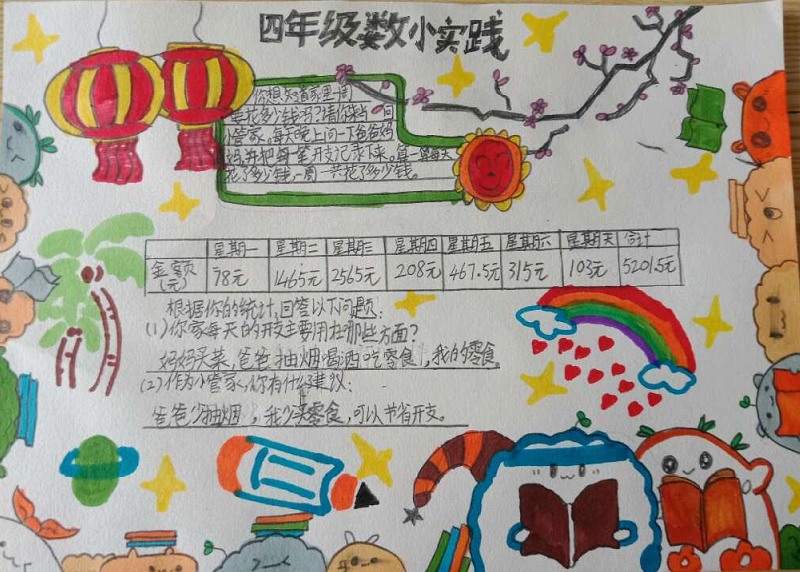 四年级数小实践
你想知道家里一周
要花多少钱吗?请你来当一回
小管家。每天晚上问一下爸爸妈
妈,并把每一笔开支记录下来。算一算每天
花了多少钱,一周一共花了多少钱。
星期一 星期二 星期三 星期四 星期五 星期六 星期天 合计
金额(元) 78元 1465元 2565元 208元 467.5元 315元 103元 5201.5元
根据你的统计,回答以下问题:
(1)你家每天的开支主要用在哪些方面?
妈妈买菜,爸爸抽烟喝酒吃零食,我的零食。
(2)作为小管家,你有什么建议:
爸爸少抽烟,我少买零食,可以节省开支。